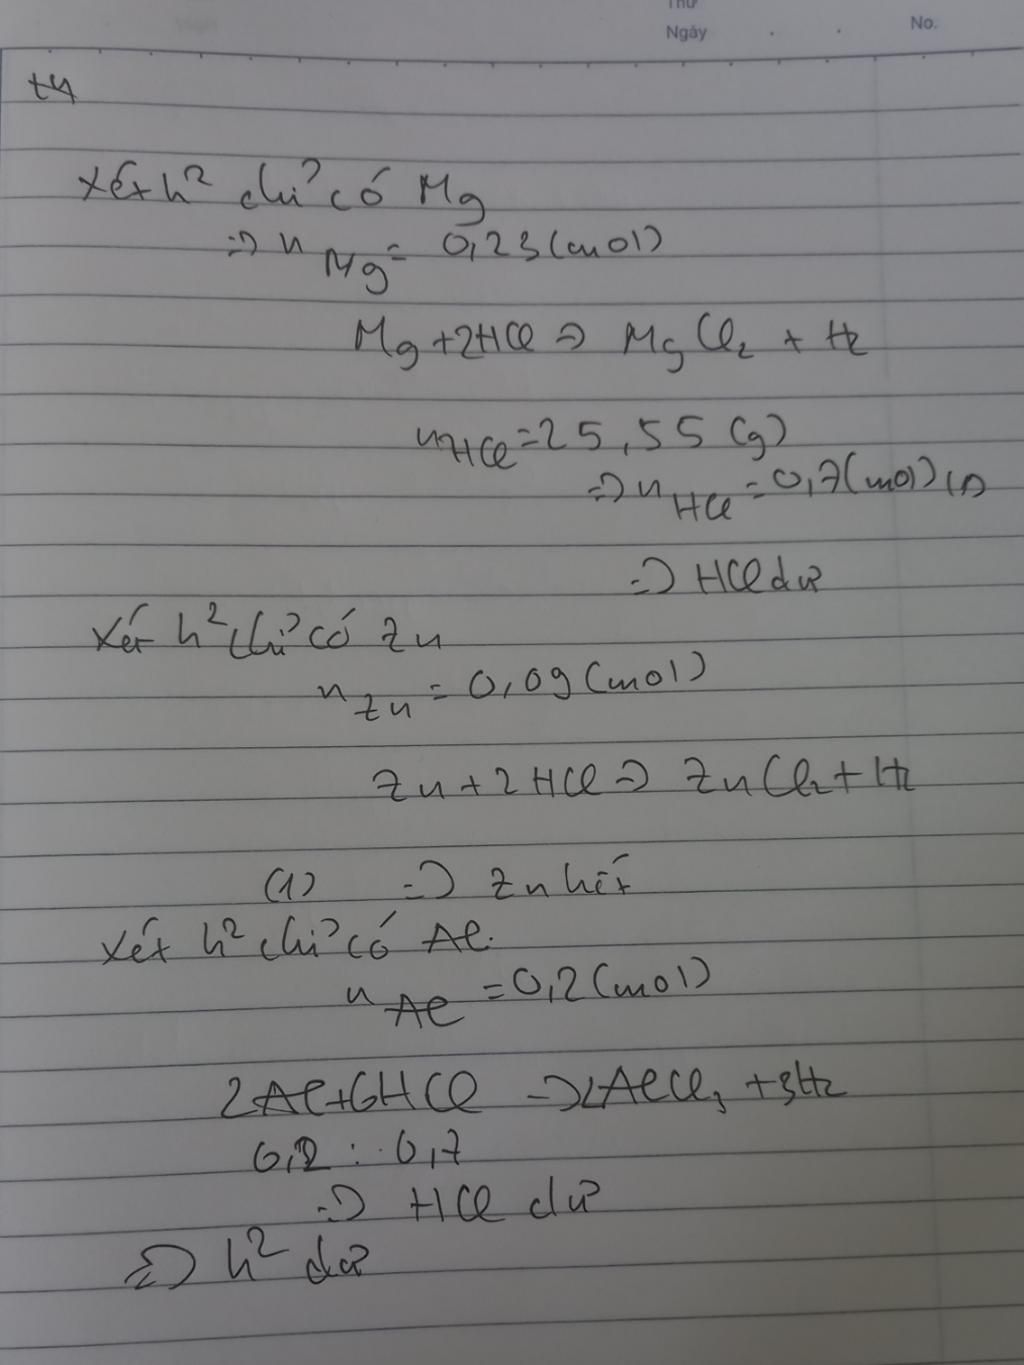 Thứ
Ngày
No.
t4
Xét h² chỉ có Mg
=> n Mg = 0,23 (mol)
Mg + 2HCl => MgCl₂ + H₂
mHCl = 25,55 (g)
=> n HCl = 0,7 (mol) (1)
=> HCl dư
Xét h² chỉ có Zn
n Zn = 0,09 (mol)
Zn + 2HCl => ZnCl₂ + H₂
(1) => Zn hết
Xét h² chỉ có Al.
n Al = 0,2 (mol)
2Al + 6HCl -> 2AlCl₃ + 3H₂
0,2 : 0,7
=> HCl dư
=> h² dư